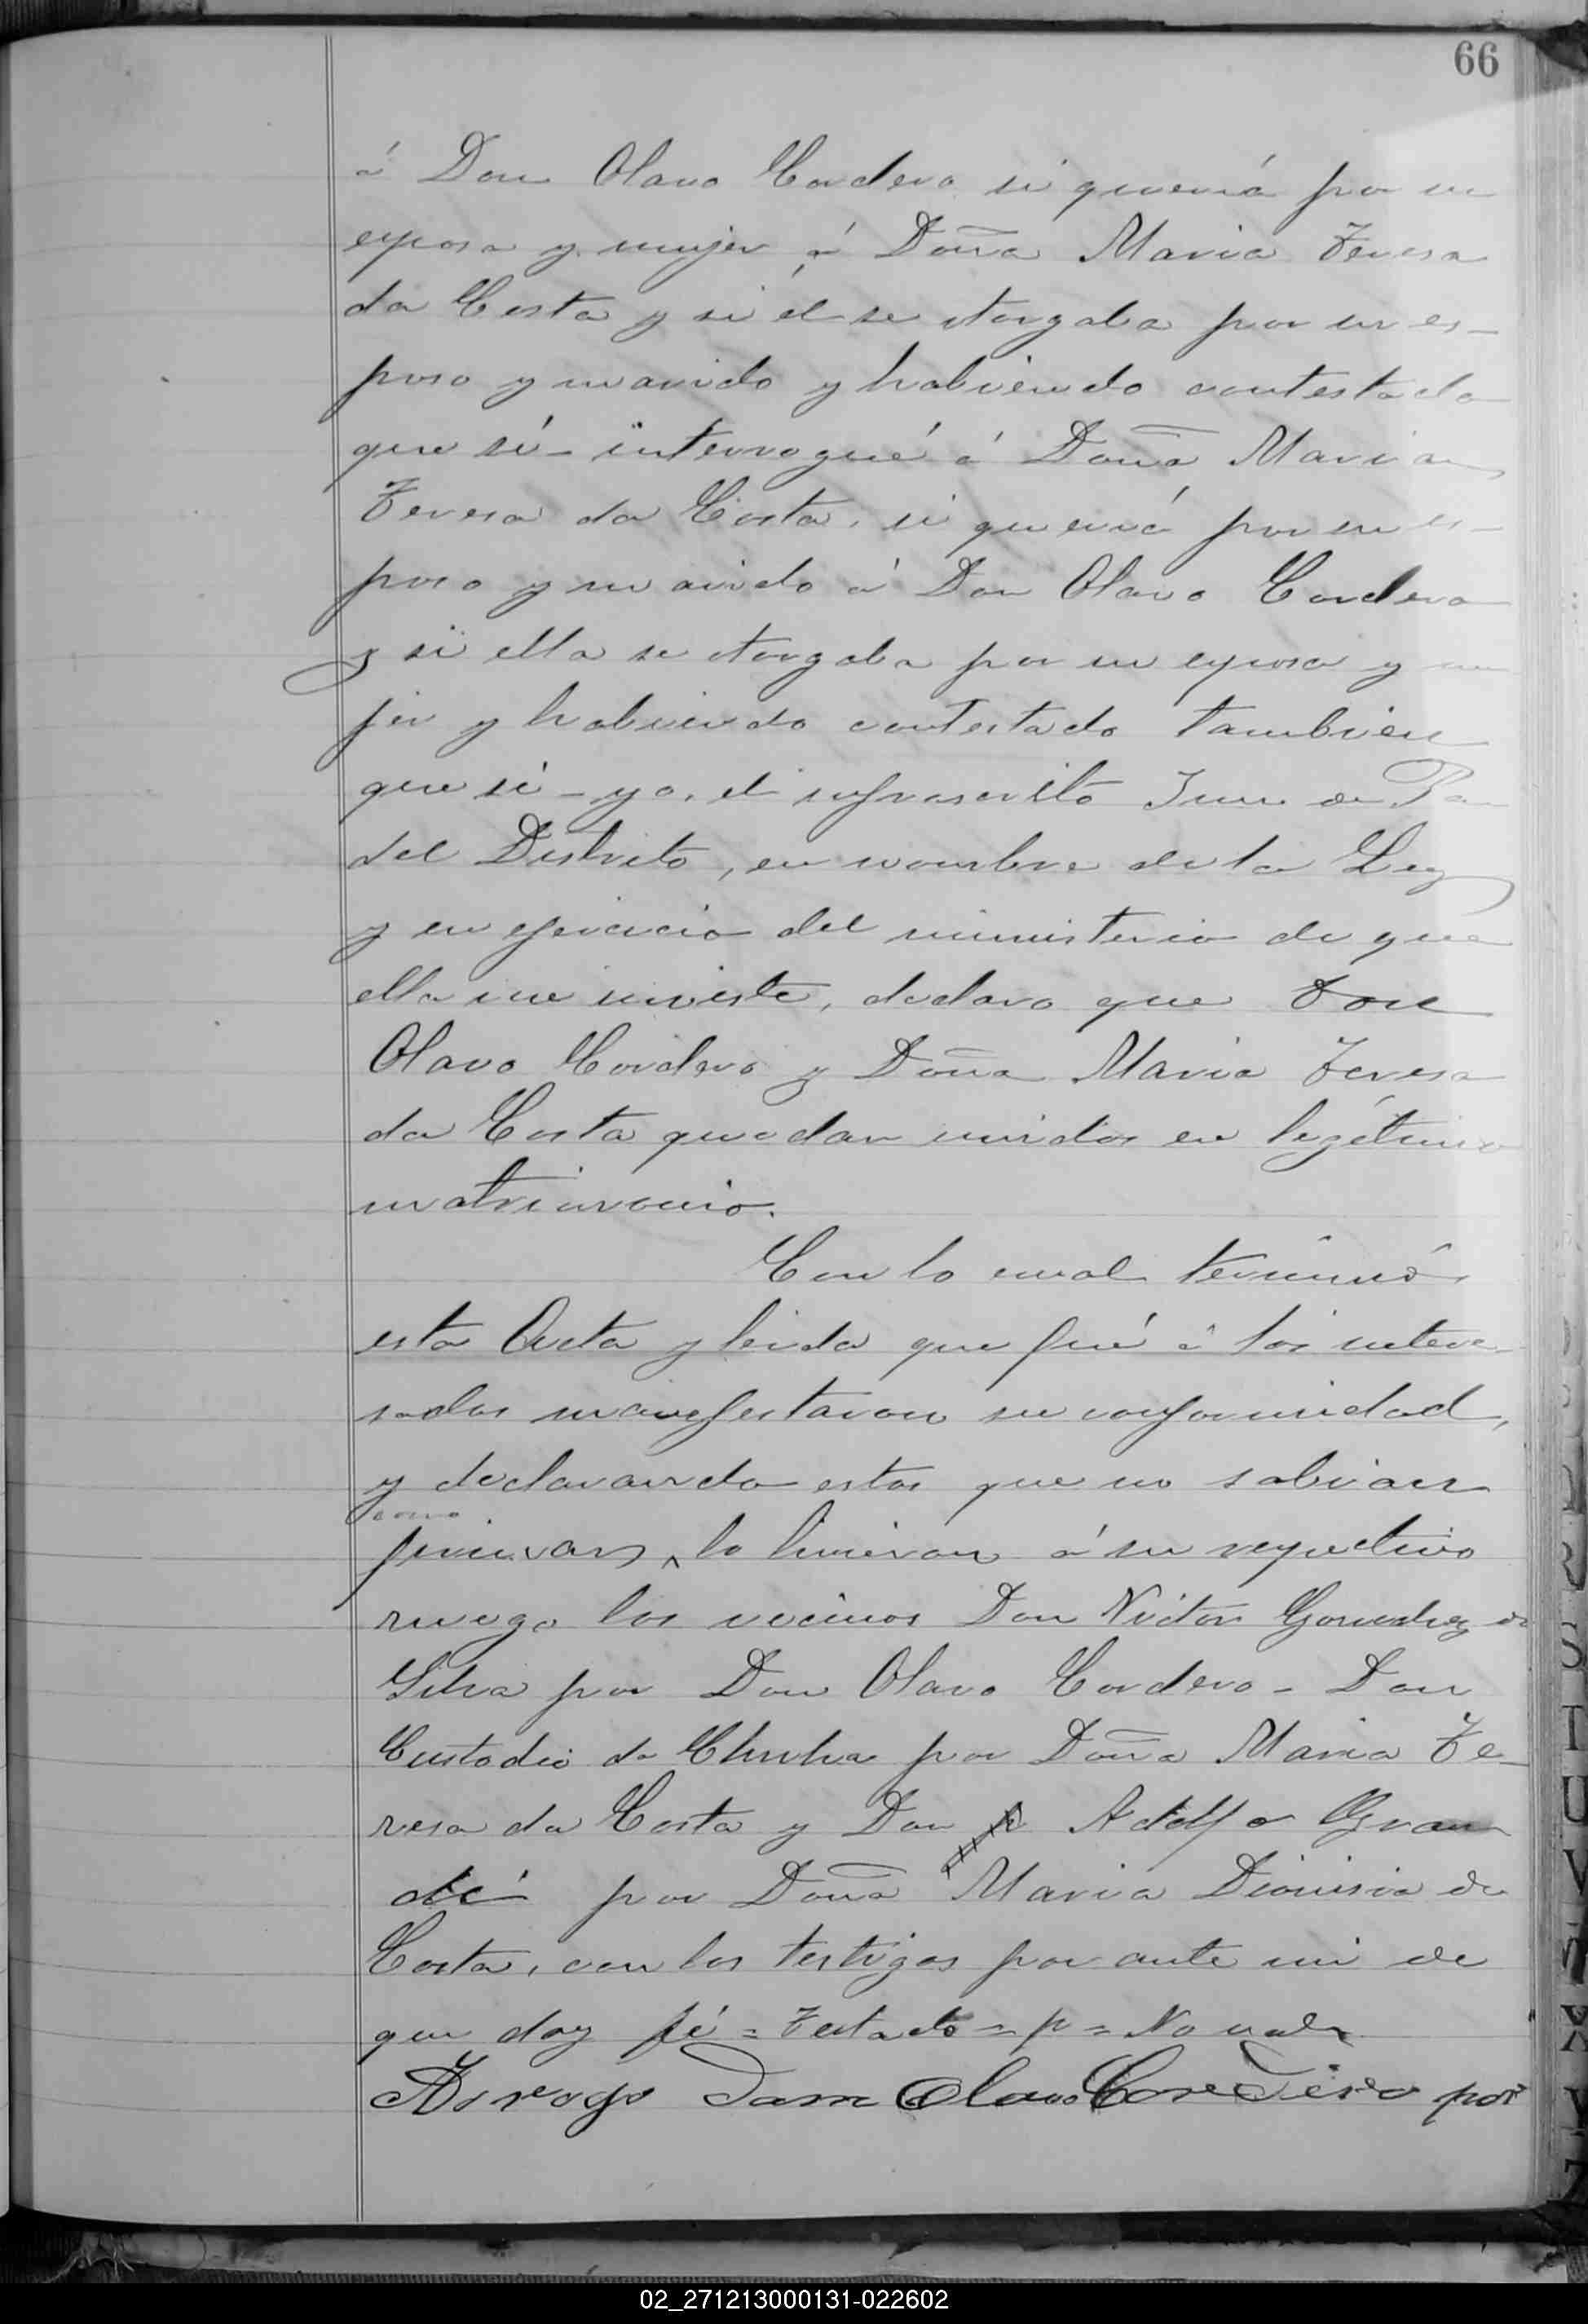 66
á Don Olavo Cordero si queriá por su
esposa y mujer á Doña Maria Teresa
da Costa y si él se otorgaba por su es-
poso y marido y habiendo contestado
que sí - interrogué á Doña Maria
Teresa da Costa, si queriá por su es-
poso y marido á Don Olavo Cordero
y si ella se otorgaba por su esposa y mu
jer y habiendo contestado tambien
que sí - yo, el infrascrito Juez de Paz
del Distrito, en nombre de la Ley
y en ejercicio del ministerio de que
ella me inviste, declaro que Don
Olavo Cordero y Doña Maria Teresa
da Costa quedan unidos en legítimo
matrimonio.
Con lo cual terminó
esta Acta y leida que fué á los intere-
sados manifestaron su conformidad,
y declarando estos que no sabian
como
firmar, lo hicieron á su respectivo
ruego los vecinos Don Victor Gonzalez da
Silva por Don Olavo Cordero - Don
Custodio da Cunha por Doña Maria Te-
resa da Costa y Don p Adolfo Gran
dé por Doña Maria Dionisia da
Costa, con los testigos por ante mi de
que doy fé = Testado = p = No vale
Arrogo Dom Olavo Cordero por
02_271213000131-022602